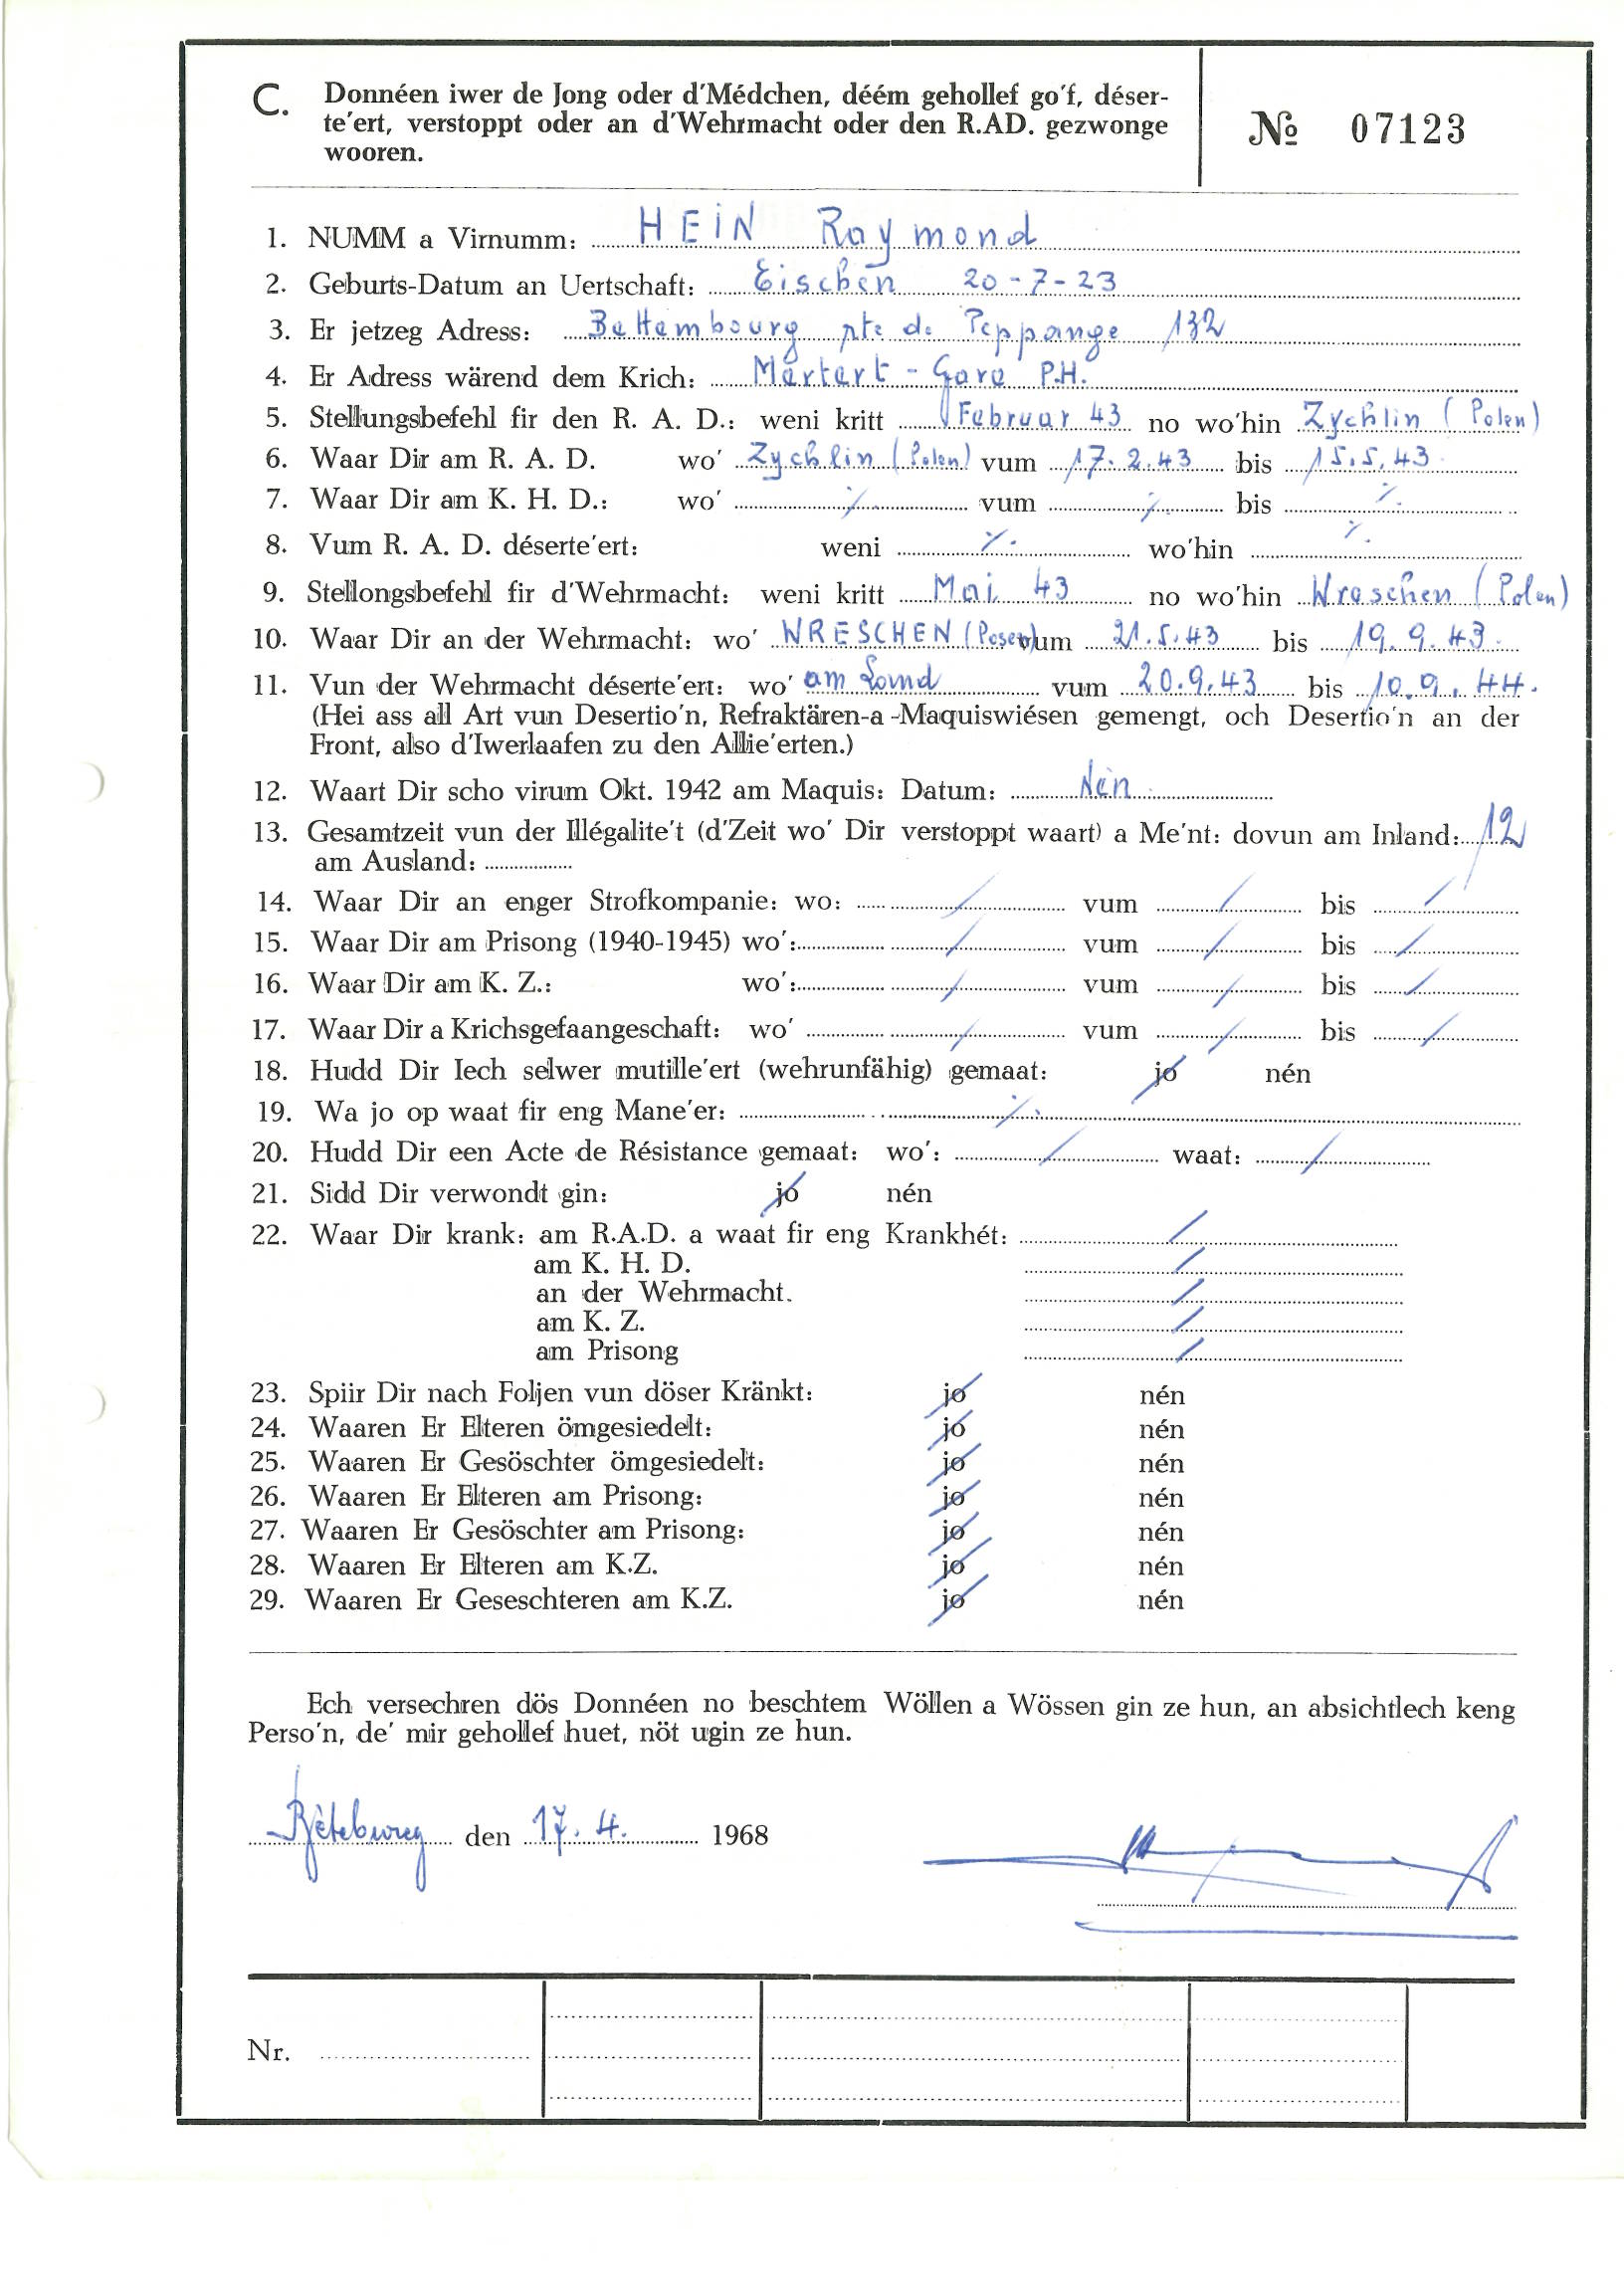 C. Donnéen iwer de Jong oder d'Médchen, déém gehollef go'f, déser-
te'ert, verstoppt oder an d'Wehrmacht oder den R.AD. gezwonge
wooren.
№ 07123
1. NUMM a Virnumm: HEIN Raymond
2. Geburts-Datum an Uertschaft: Eischen 20-7-23
3. Er jetzeg Adress: Bettembourg rte de Peppange 132
4. Er Adress wärend dem Krich: Mertert-Gare P.H.
5. Stellungsbefehl fir den R. A. D.: weni kritt Februar 43 no wo'hin Zychlin (Polen)
6. Waar Dir am R. A. D. wo' Zychlin (Polen) vum 17.2.43 bis 15.5.43
7. Waar Dir am K. H. D.: wo' ./. vum ./. bis ./.
8. Vum R. A. D. déserte'ert: weni ./. wo'hin ./.
9. Stellongsbefehl fir d'Wehrmacht: weni kritt Mai 43 no wo'hin Wreschen (Polen)
10. Waar Dir an der Wehrmacht: wo' WRESCHEN (Posen) vum 21.5.43 bis 19.9.43
11. Vun der Wehrmacht déserte'ert: wo' am Land vum 20.9.43 bis 10.9.44.
(Hei ass all Art vun Desertio'n, Refraktären-a-Maquiswiésen gemengt, och Desertio'n an der
Front, also d'Iwerlaafen zu den Allie'erten.)
12. Waart Dir scho virum Okt. 1942 am Maquis: Datum: Nén
13. Gesamtzeit vun der Illégalite't (d'Zeit wo' Dir verstoppt waart) a Me'nt: dovun am Inland: 12
am Ausland:
14. Waar Dir an enger Strofkompanie: wo: / vum / bis /
15. Waar Dir am Prisong (1940-1945) wo': / vum / bis /
16. Waar Dir am K. Z.: wo': / vum / bis /
17. Waar Dir a Krichsgefaangeschaft: wo' / vum / bis /
18. Hudd Dir Iech selwer mutille'ert (wehrunfähig) gemaat: jo nén
19. Wa jo op waat fir eng Mane'er: ./.
20. Hudd Dir een Acte de Résistance gemaat: wo': / waat: /
21. Sidd Dir verwondt gin: jo nén
22. Waar Dir krank: am R.A.D. a waat fir eng Krankhét: /
am K. H. D. /
an der Wehrmacht. /
am K. Z. /
am Prisong /
23. Spiir Dir nach Foljen vun döser Kränkt: jo nén
24. Waaren Er Elteren ömgesiedelt: jo nén
25. Waaren Er Gesöschter ömgesiedelt: jo nén
26. Waaren Er Elteren am Prisong: jo nén
27. Waaren Er Gesöschter am Prisong: jo nén
28. Waaren Er Elteren am K.Z. jo nén
29. Waaren Er Geseschteren am K.Z. jo nén
Ech versechren dös Donnéen no beschtem Wöllen a Wössen gin ze hun, an absichtlech keng
Perso'n, de' mir gehollef huet, nöt ugin ze hun.
den 17.4. 1968
Nr.